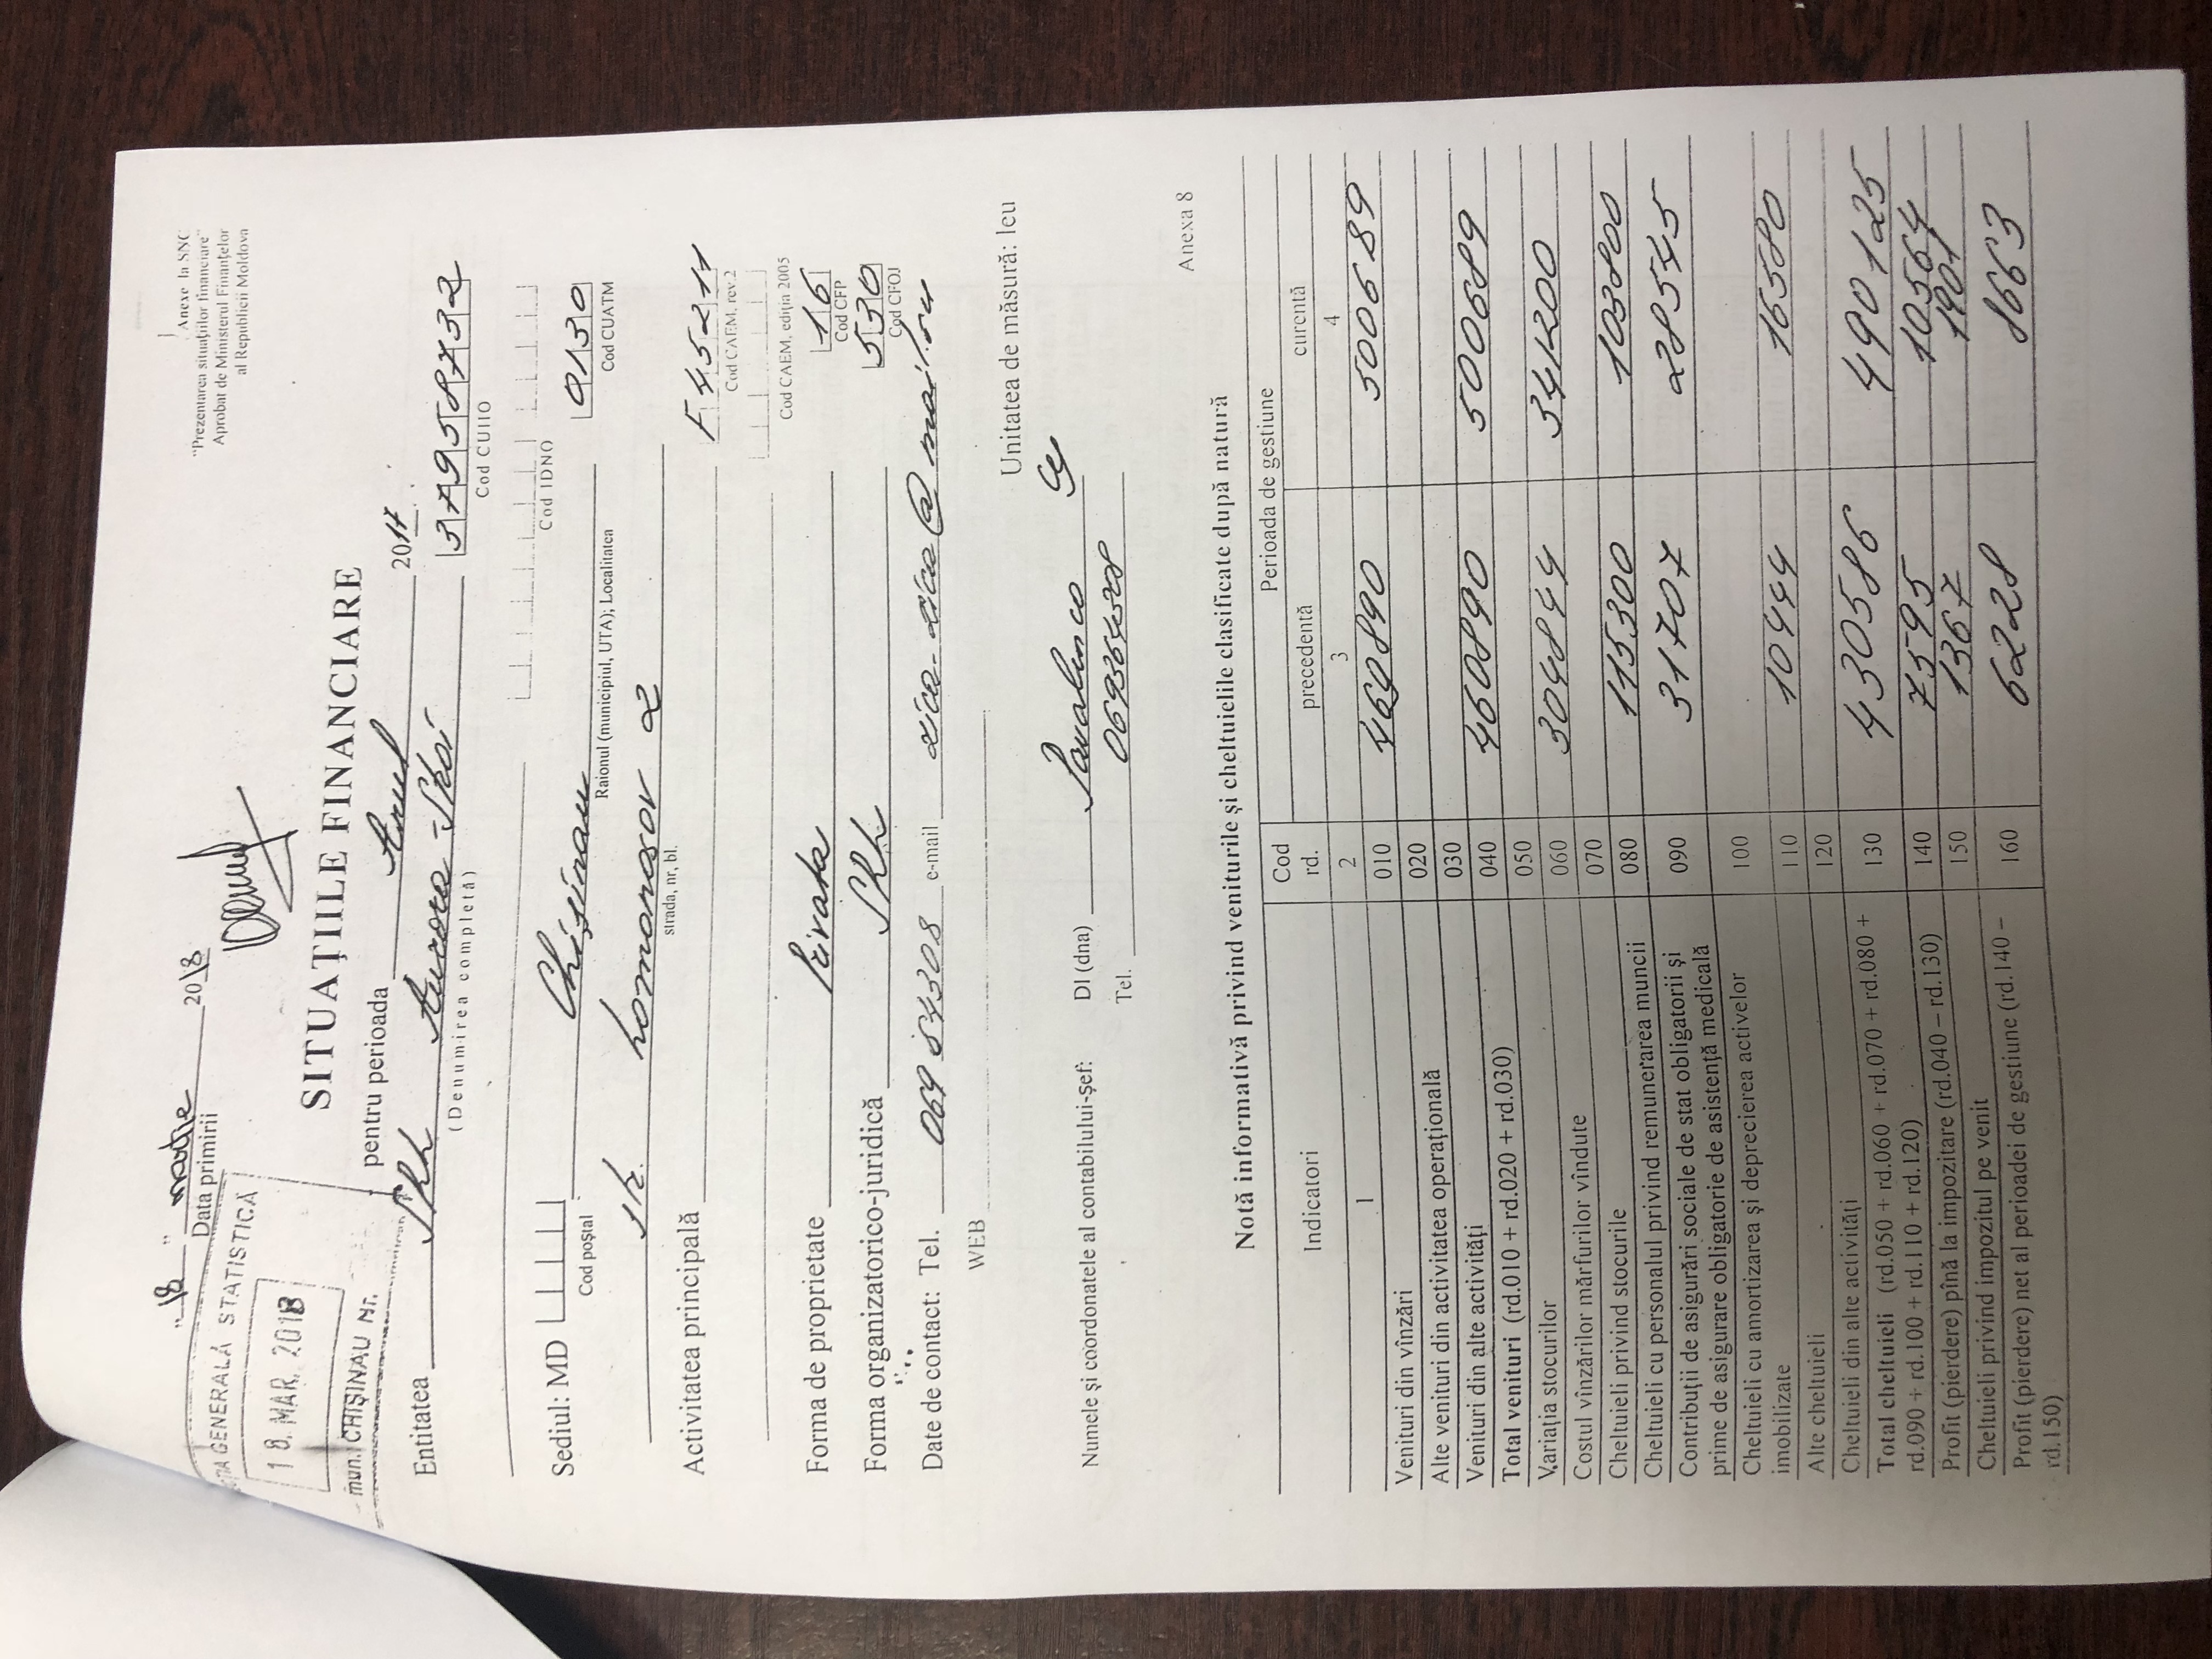 Anexe la SNC
"Prezentarea situațiilor financiare"
Aprobat de Ministerul Finanțelor
al Republicii Moldova
"18" martie 2018
Data primirii
GENERALĂ STATISTICĂ
18. MAR. 2018
mun. CHIȘINAU Nr.
SITUAȚIILE FINANCIARE
pentru perioada Anul 2017
Entitatea SRL Aurora-Skoi
(Denumirea completă)
37958732
Cod CUIIO
Cod IDNO
Sediul: MD Chișinau 0130
Cod poștal Raionul (municipiul, UTA); Localitatea Cod CUATM
str. Lomonosov 2
strada, nr, bl.
Activitatea principală
Cod CAEM, rev.2
Cod CAEM, ediția 2005
Forma de proprietate Privata 16
Cod CFP
Forma organizatorico-juridică SRL 530
Cod CFOJ
Date de contact: Tel. e-mail
WEB
Numele și coordonatele al contabilului-șef: Dl (dna)
Tel. 069364308
Unitatea de măsură: leu
Anexa 8
Notă informativă privind veniturile și cheltuielile clasificate după natură
Indicatori Cod rd. Perioada de gestiune
precedentă curentă
1 2 3 4
Venituri din vînzări 010 460890 500689
Alte venituri din activitatea operațională 020
Venituri din alte activități 030
Total venituri (rd.010 + rd.020 + rd.030) 040 460890 500689
Variația stocurilor 050
Costul vînzărilor mărfurilor vîndute 060 304844 341200
Cheltuieli privind stocurile 070
Cheltuieli cu personalul privind remunerarea muncii 080 115300 103800
Contribuții de asigurări sociale de stat obligatorii și
prime de asigurare obligatorie de asistență medicală 090 31707 28545
Cheltuieli cu amortizarea și deprecierea activelor
imobilizate 100
Alte cheltuieli 110 10944 16580
Cheltuieli din alte activități 120
Total cheltuieli (rd.050 + rd.060 + rd.070 + rd.080 +
rd.090 + rd.100 + rd.110 + rd.120) 130 430586 490125
Profit (pierdere) pînă la impozitare (rd.040 – rd.130) 140 7595 10564
Cheltuieli privind impozitul pe venit 150 1367 1901
Profit (pierdere) net al perioadei de gestiune (rd.140 –
rd.150) 160 6228 8663